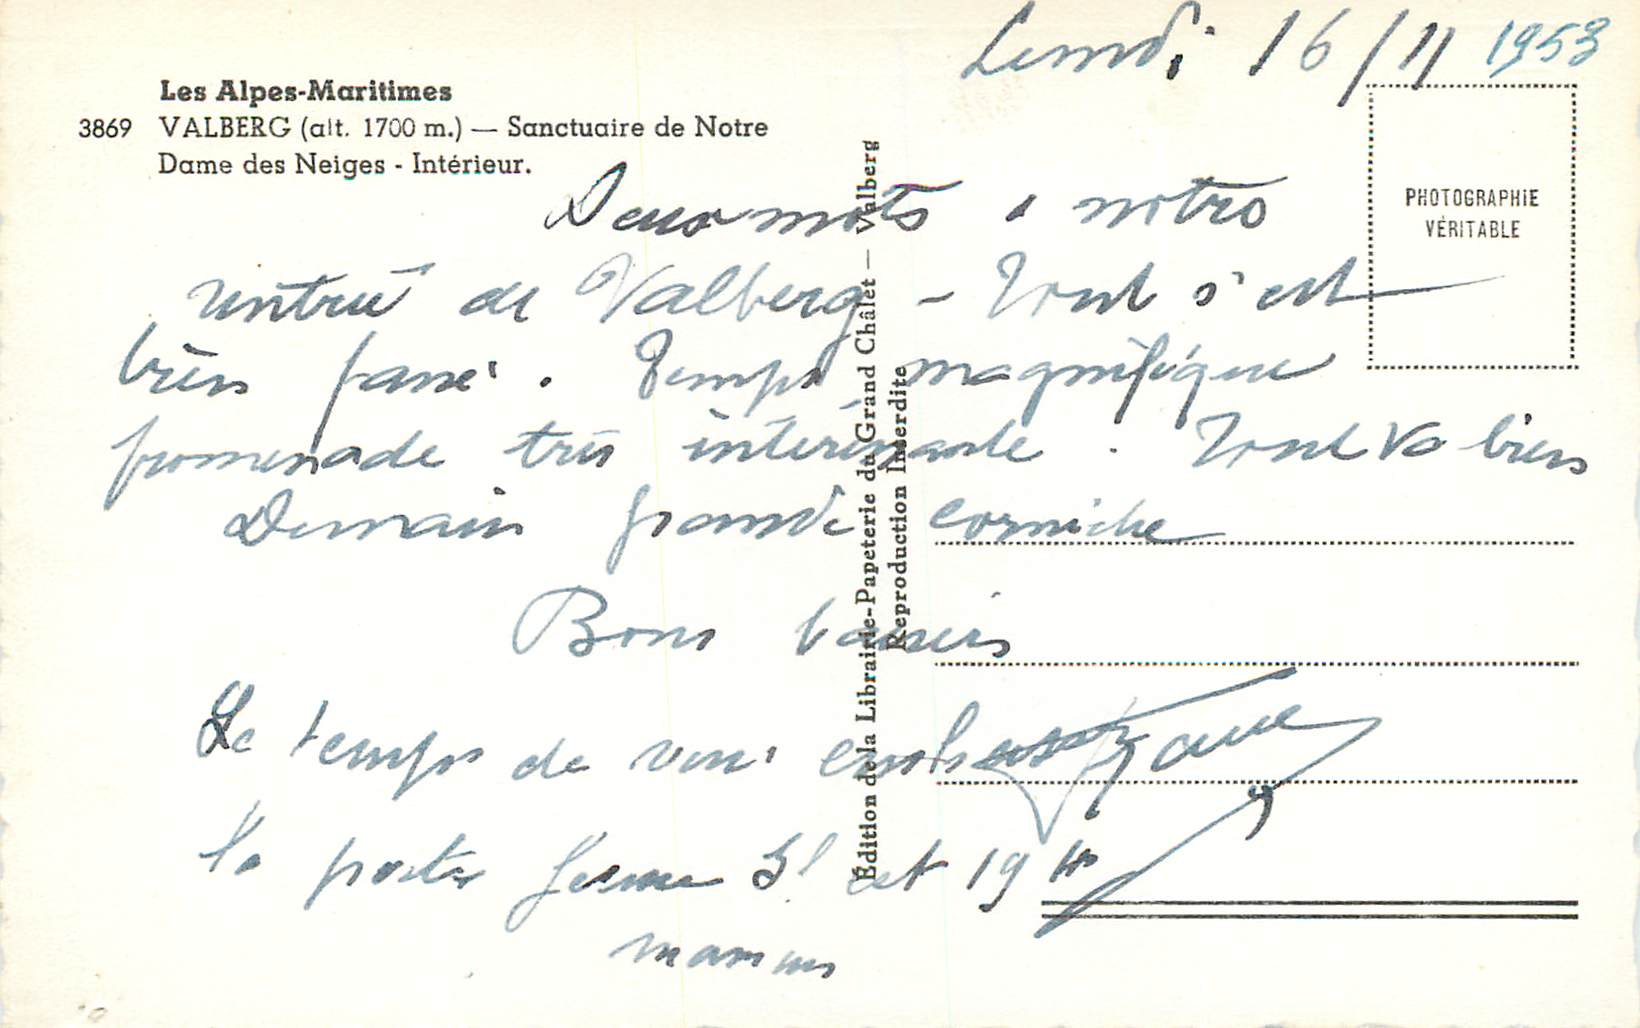 Lundi 16/11 1953
Les Alpes-Maritimes
3869 VALBERG (alt. 1700 m.) — Sanctuaire de Notre
Dame des Neiges - Intérieur.
PHOTOGRAPHIE
VÉRITABLE
Deux mots à notre
rentrée de Valberg - Tout s'est
bien passé. Temps magnifique
promenade très intéressante. Tout va bien
Demain grande corniche
Bons baisers
Le temps de vous
la poste ferme Il est 19 h
maman
Édition de la Librairie-Papeterie du Grand Châlet — Valberg
Reproduction Interdite